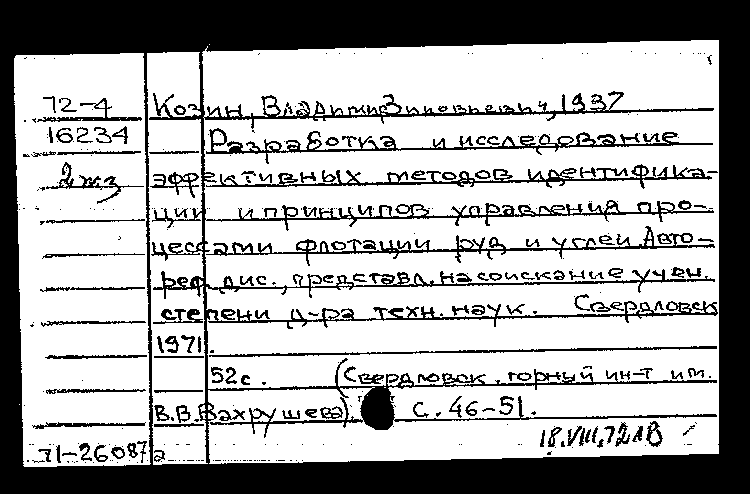 72-4 Козин, Владимир Зиновьевич, 1937
16234 Разработка и исследование
2 жз эффективных методов идентифика-
ции и принципов управления про-
цессами флотации руд и углей. Авто-
реф. дис., представл. на соискание учен.
степени д-ра техн. наук. Свердловск
1971.
52с. (Свердловск. горный ин-т им.
В.В. Вахрушева). С. 46-51.
71-26087а 18.VIII.72